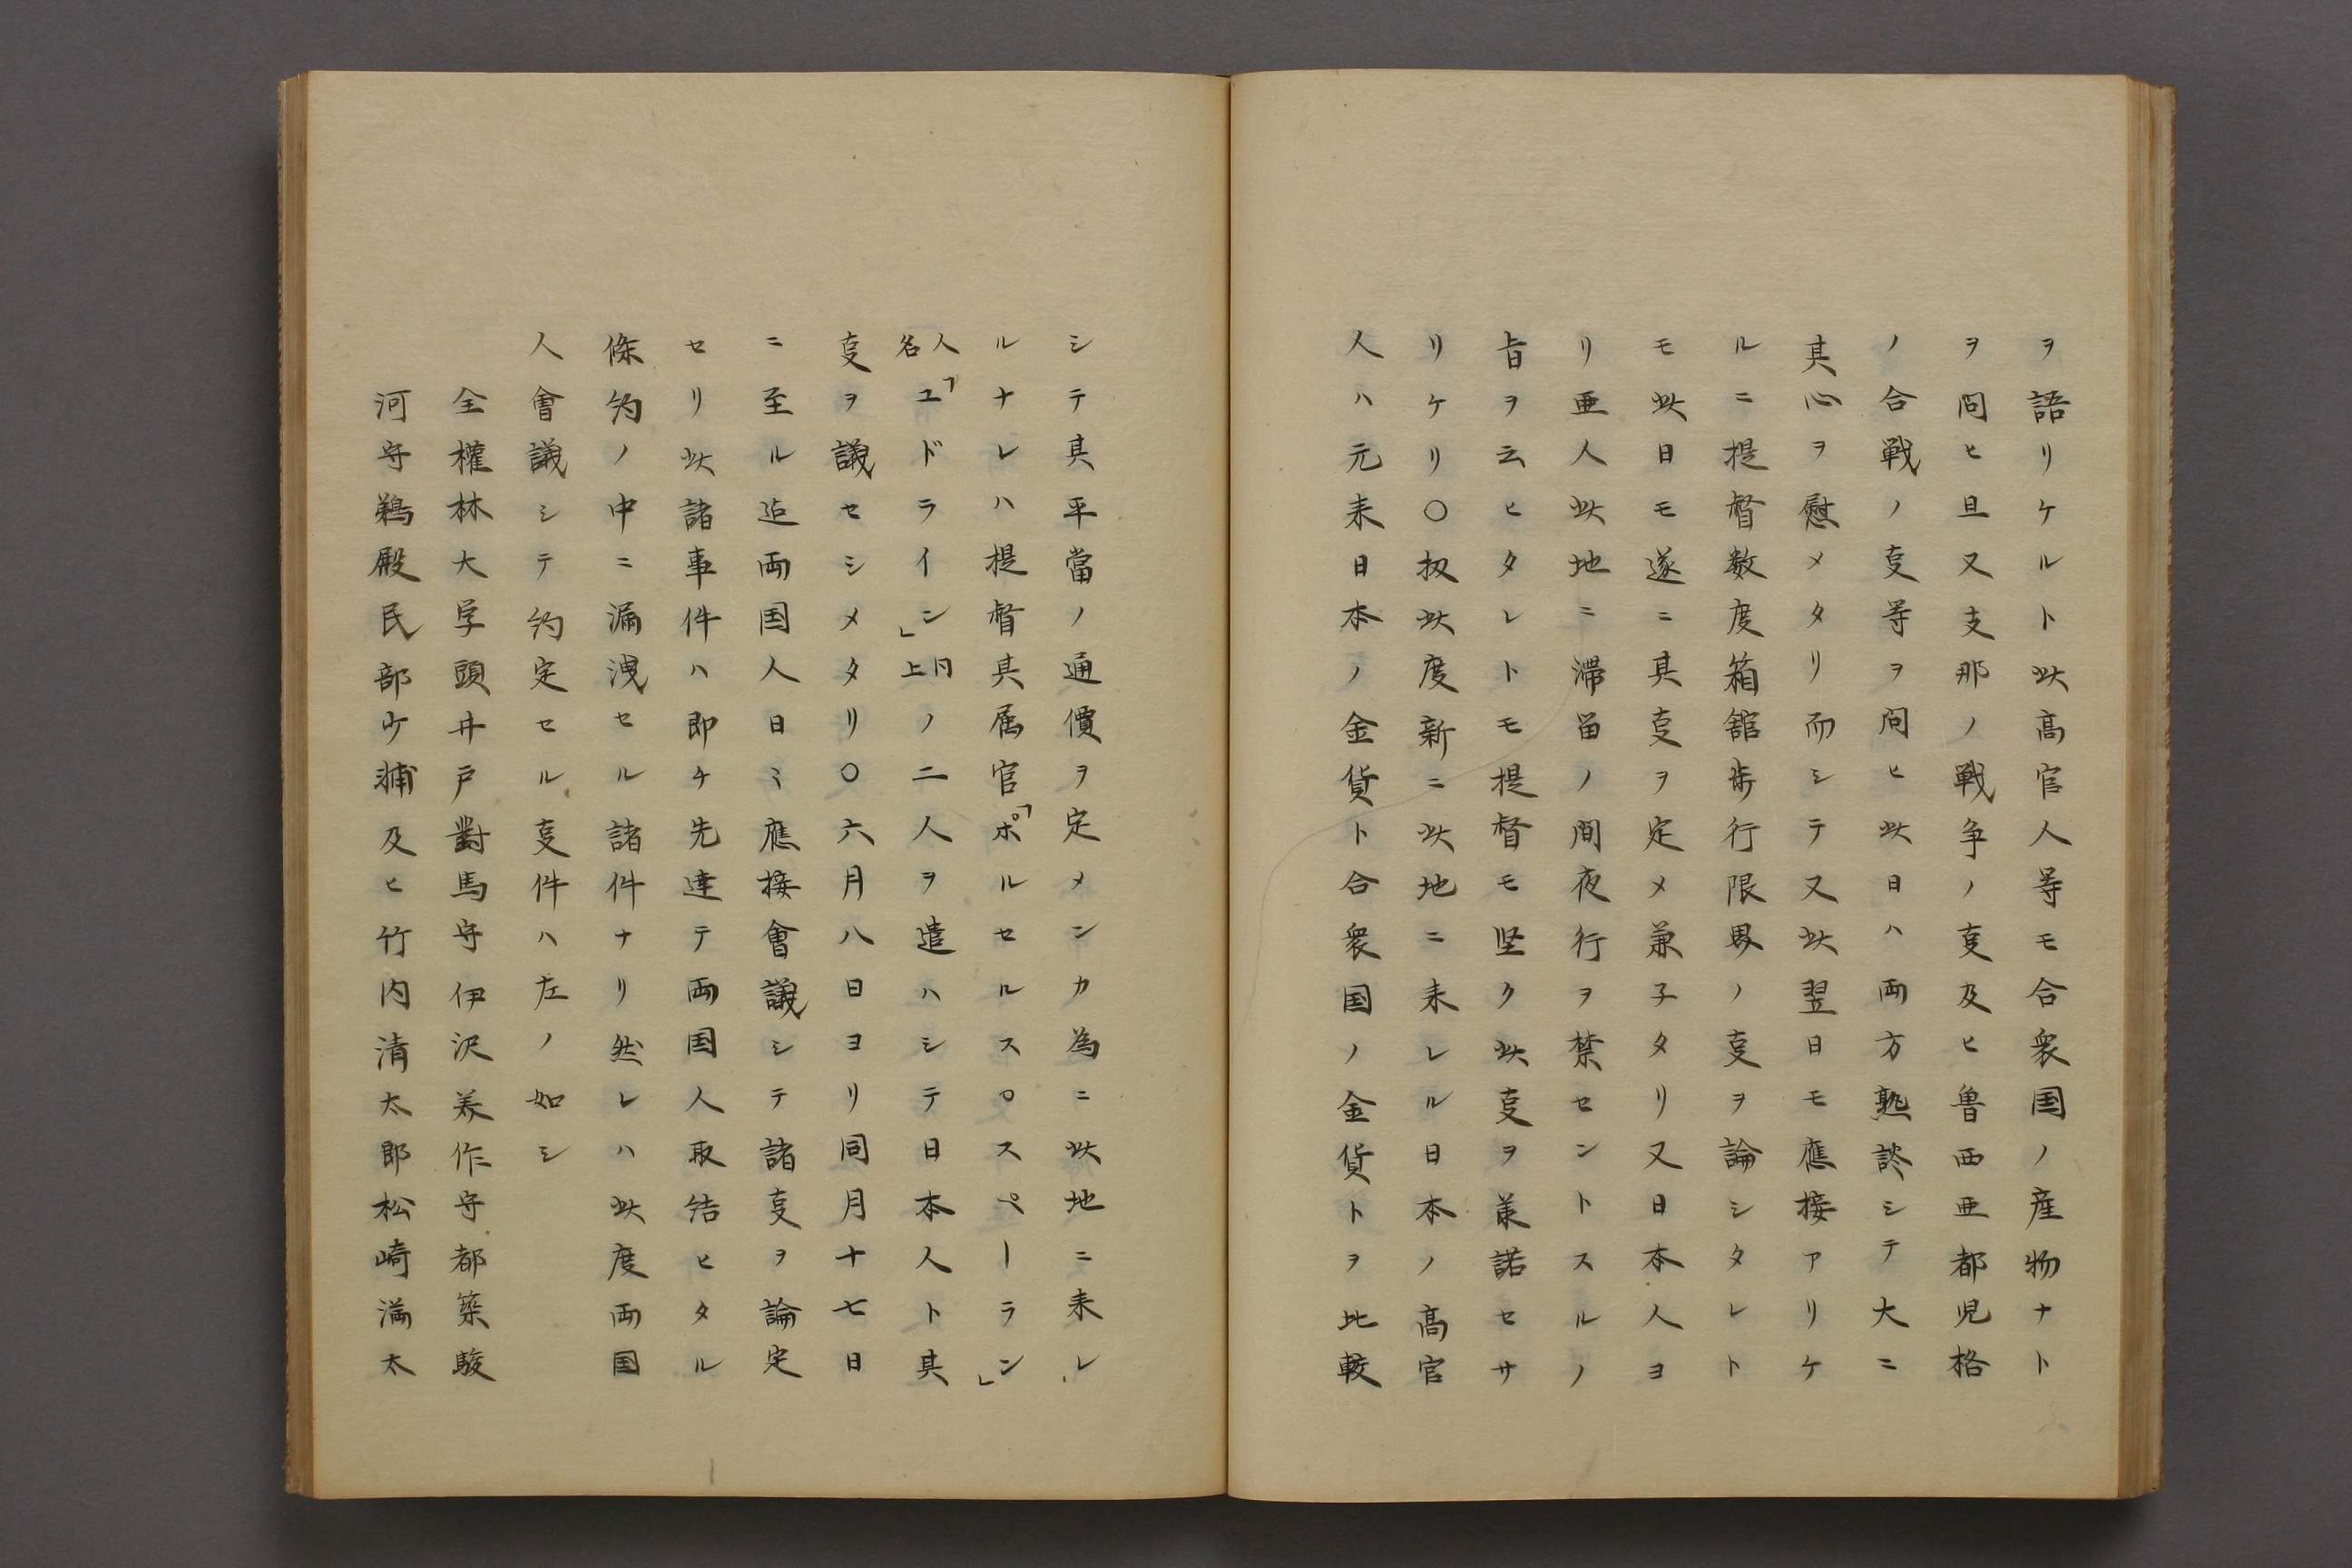 ヲ語リケルト此高官人等モ合衆国ノ産物ナト
ヲ問ヒ旦又支那ノ戦争ノ叓及ヒ魯西亜都児格
ノ合戦ノ叓等ヲ问ヒ此日ハ両方熟談シテ大ニ
其心ヲ慰メタリ而シテ又此翌日モ應接アリケ
ルニ提督数度箱舘歩行限界ノ叓ヲ論シタレト
モ此日モ遂ニ其叓ヲ定メ兼子タリ又日本人ヨ
リ亜人此地ニ滞畄ノ間夜行ヲ禁セントスルノ
旨ヲ云ヒタレトモ提督モ坚ク此叓ヲ兼諾セサ
リケリ〇扨此度新ニ此地ニ来レル日本ノ高官
人ハ元来日本ノ金貨ト合衆国ノ金貨トヲ比較
シテ其平當ノ通價ヲ定メンカ為ニ此地ニ来レ
ルナレハ提督其属官「ポルセルスpスペーラン」
人名「ユドライン」仝上ノ二人ヲ遣ハシテ日本人ト其
叓ヲ議セシメタリ〇六月八日ヨリ同月十七日
ニ至ル迠両国人日ミ應接會議シテ諸叓ヲ論定
セリ此諸事件ハ即チ先達テ両国人取結ヒタル
條約ノ中ニ漏洩セル諸件ナリ然レハ此度両国
人會議シテ約定セル叓件ハ左ノ如シ
全權林大学頭井戸對馬守伊沢美作守都築駿
河守鵜殿民部少浦及ヒ竹内清太郎松崎満太